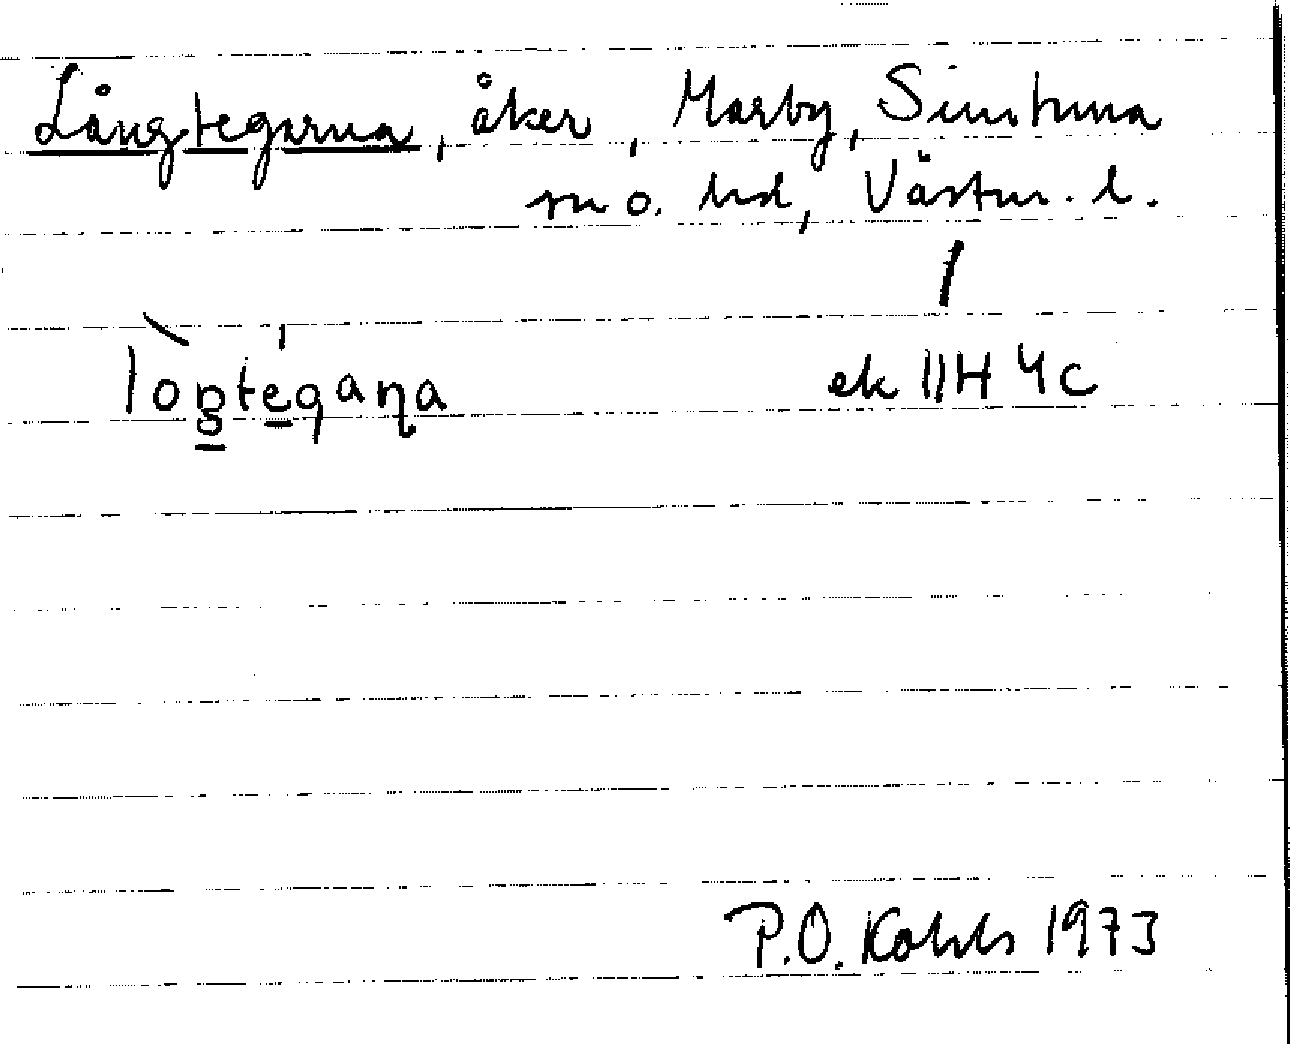 Långtegarna, åker, Marby, Simtuna
sn o. hd, Västm. l.
ek 11H 4c
P.O. Kohls 1973